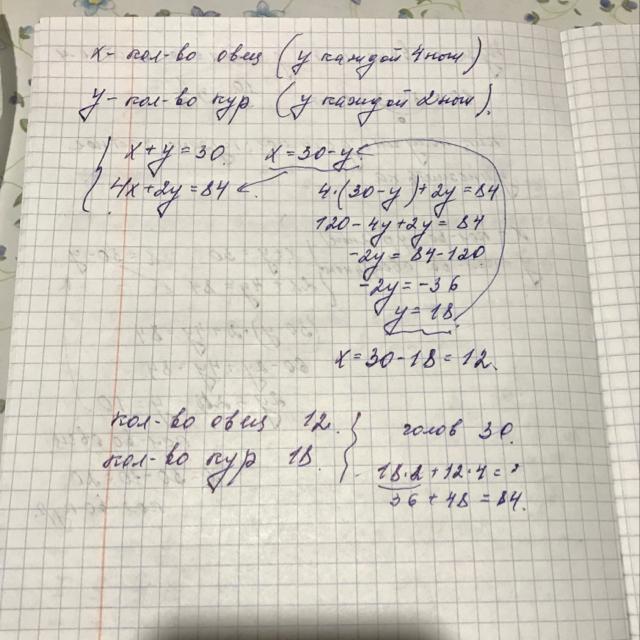 x - кол-во овец (у каждой 4 ног)
y - кол-во кур (у каждой 2 ног).
x+y=30 x=30-y
4x+2y=84
4·(30-y)+2y=84
120-4y+2y=84
-2y=84-120
-2y=-36
y=18.
x=30-18=12.
кол-во овец 12.
кол-во кур 18.
голов 30.
18·2+12·4=?
36+48=84.